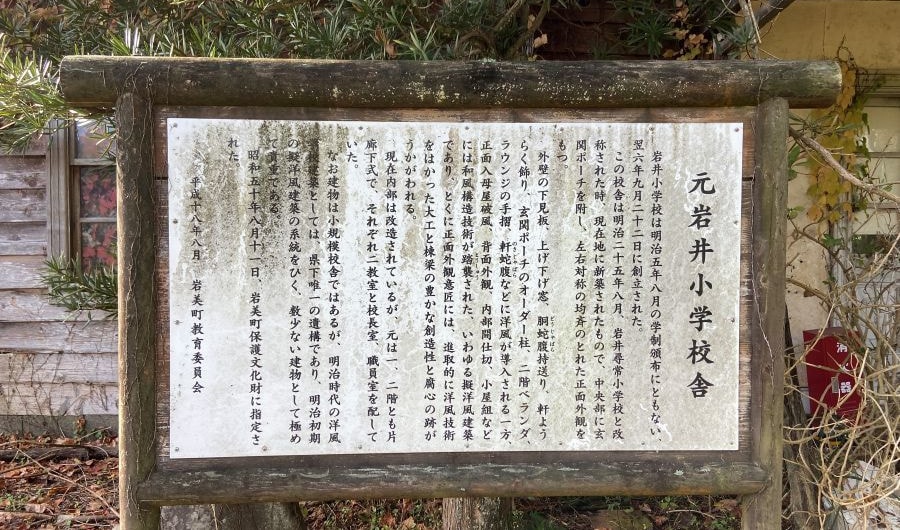 元岩井小学校舎
岩井小学校は明治五年八月の学制頒布にともない、
翌六年九月二十二日に創立された。
この校舎は明治二十五年八月、岩井尋常小学校と改
称された時、現在地に新築されたもので、中央部に玄
関ポーチを附し、左右対称の均斉のとれた正面外観を
もつ。
外壁の下見板、上げ下げ窓、胴蛇腹持送り、軒よう
らく飾り、玄関ポーチのオーダー柱、二階ベランダ、
ラウンジの手摺、軒蛇腹などに洋風が導入される一方、
正面入母屋破風、背面外観、内部間仕切、小屋組など
には和風構造技術が踏襲された、いわゆる擬洋風建築
であり、とくに正面外観意匠には、進取的に洋風技術
をはかった大工と棟梁の豊かな創造性と腐心の跡が
うかがわれる。
現在内部は改造されているが、元は一、二階とも片
廊下式で、それぞれ二教室と校長室、職員室を配して
いた。
なお建物は小規模校舎ではあるが、明治時代の洋風
学校建築としては、県下唯一の遺構であり、明治初期
の擬洋風建築の系統をひく、数少ない建物として極め
て貴重である。
昭和五十年八月十一日、岩美町保護文化財に指定さ
れた。
平成十八年八月 岩美町教育委員会
消
器